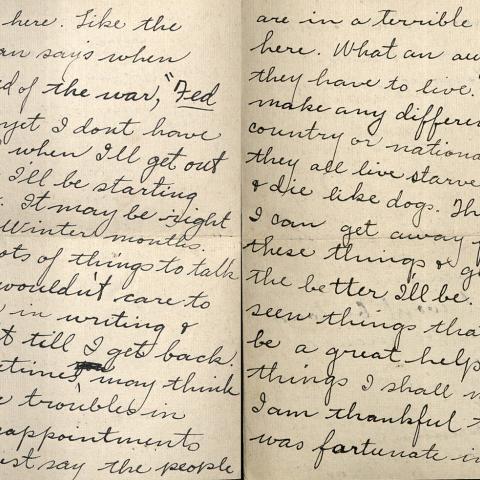 here. Like the
says when
of the war, "Fed
yet I dont have
when I'll get out
I'll be starting
It may be right
Winter months.
of things to talk
wouldn't care to
in writing &
till I get back.
may think
troubles in
say the people
are in a terrible
here. What an
they have to live.
make any
country or
they all live starve
& die like dogs.
I can get away
these things &
the better I'll be.
seen things
be a great help
things I shall
I am thankful
was fortunate